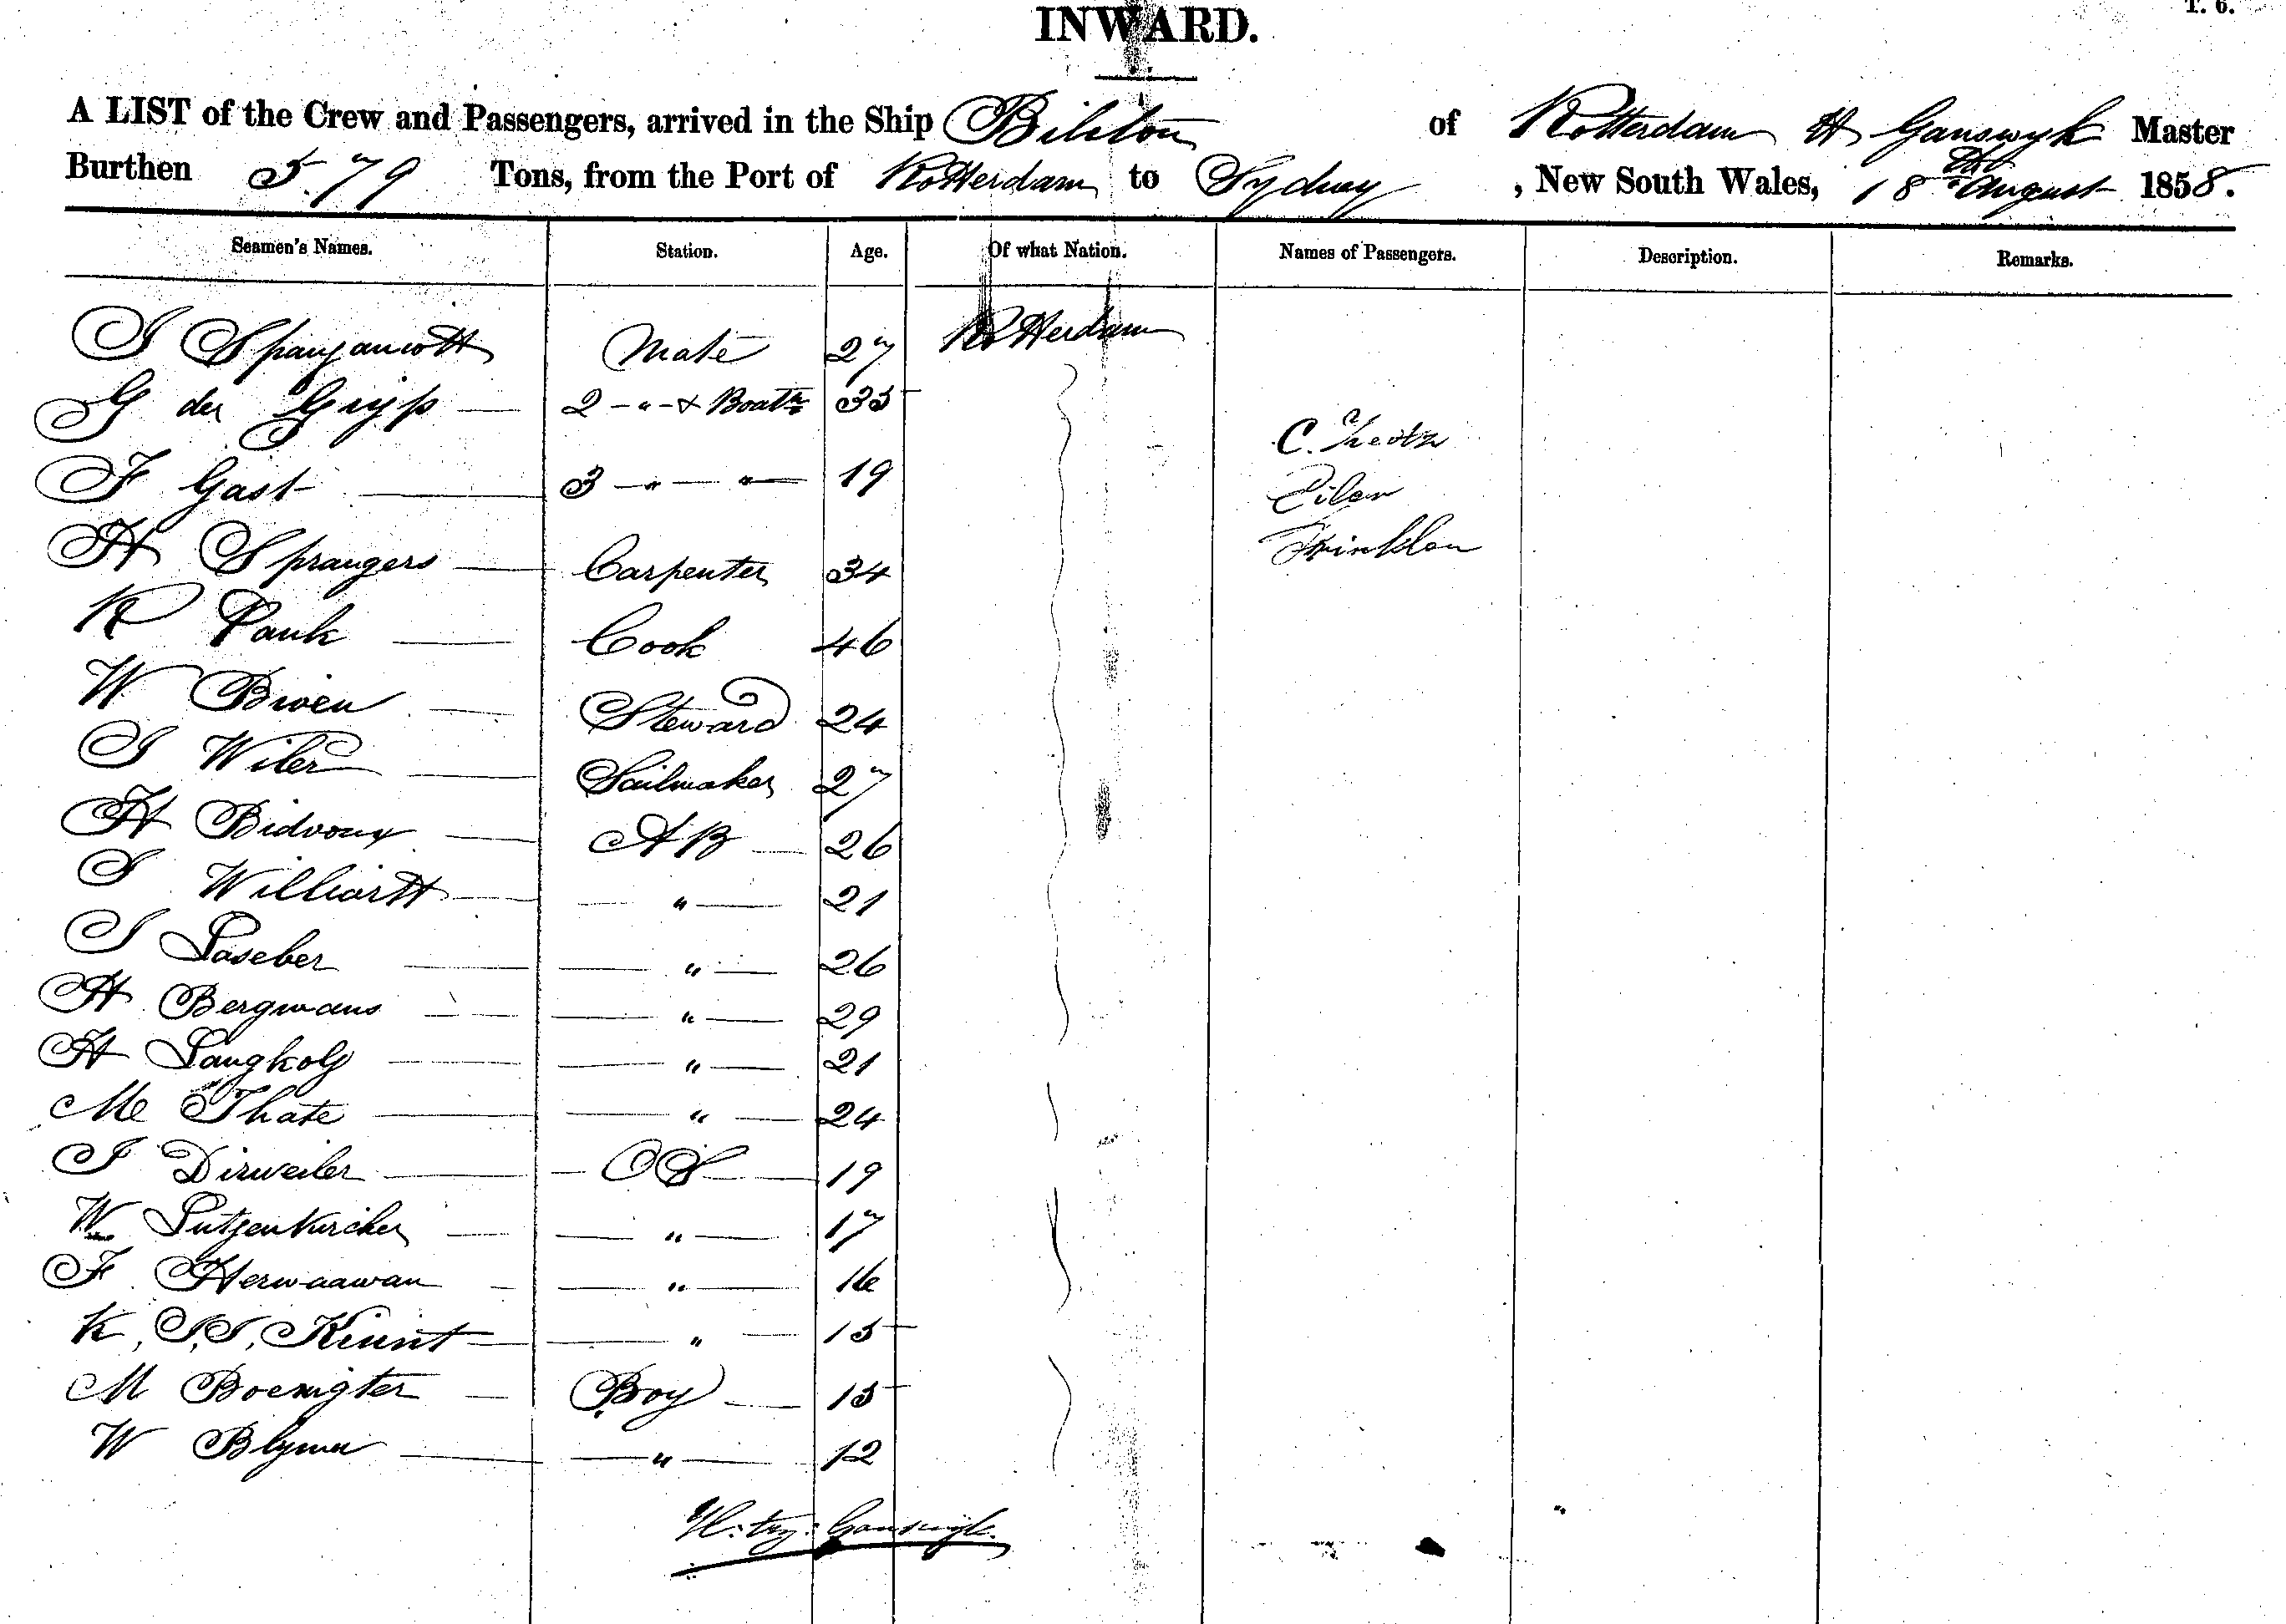 T. 6.
INWARD.
A LIST of the Crew and Passengers, arrived in the Ship Biliton of Rotterdam H Ganswyk Master
Burthen 579 Tons, from the Port of Rotterdam to Sydney, New South Wales, 18th August 1858.
Seamen's Names. Station. Age. Of what Nation. Names of Passengers. Description. Remarks.
J Mate 27 Rotterdam
G der Gryp 2 - " - & Boatn 35
C.
F Gast 3 - " - " - 19
Eiler
H Sprangers Carpenter 34
K Pank Cook 46
W Biven Steward 24
J Wiler Sailmaker 27
H Bidvoux AB 26
J Williartt " 21
J Laseber " 26
H Bergmans " 29
H Langkolf " 21
M Thate " 24
J Dirweiler OS 19
W Lutzenkircher " 17
F Herwaawan " 16
K. J. J. Kinnt " 15
M Boenigter Boy 15
W Blymer " 12